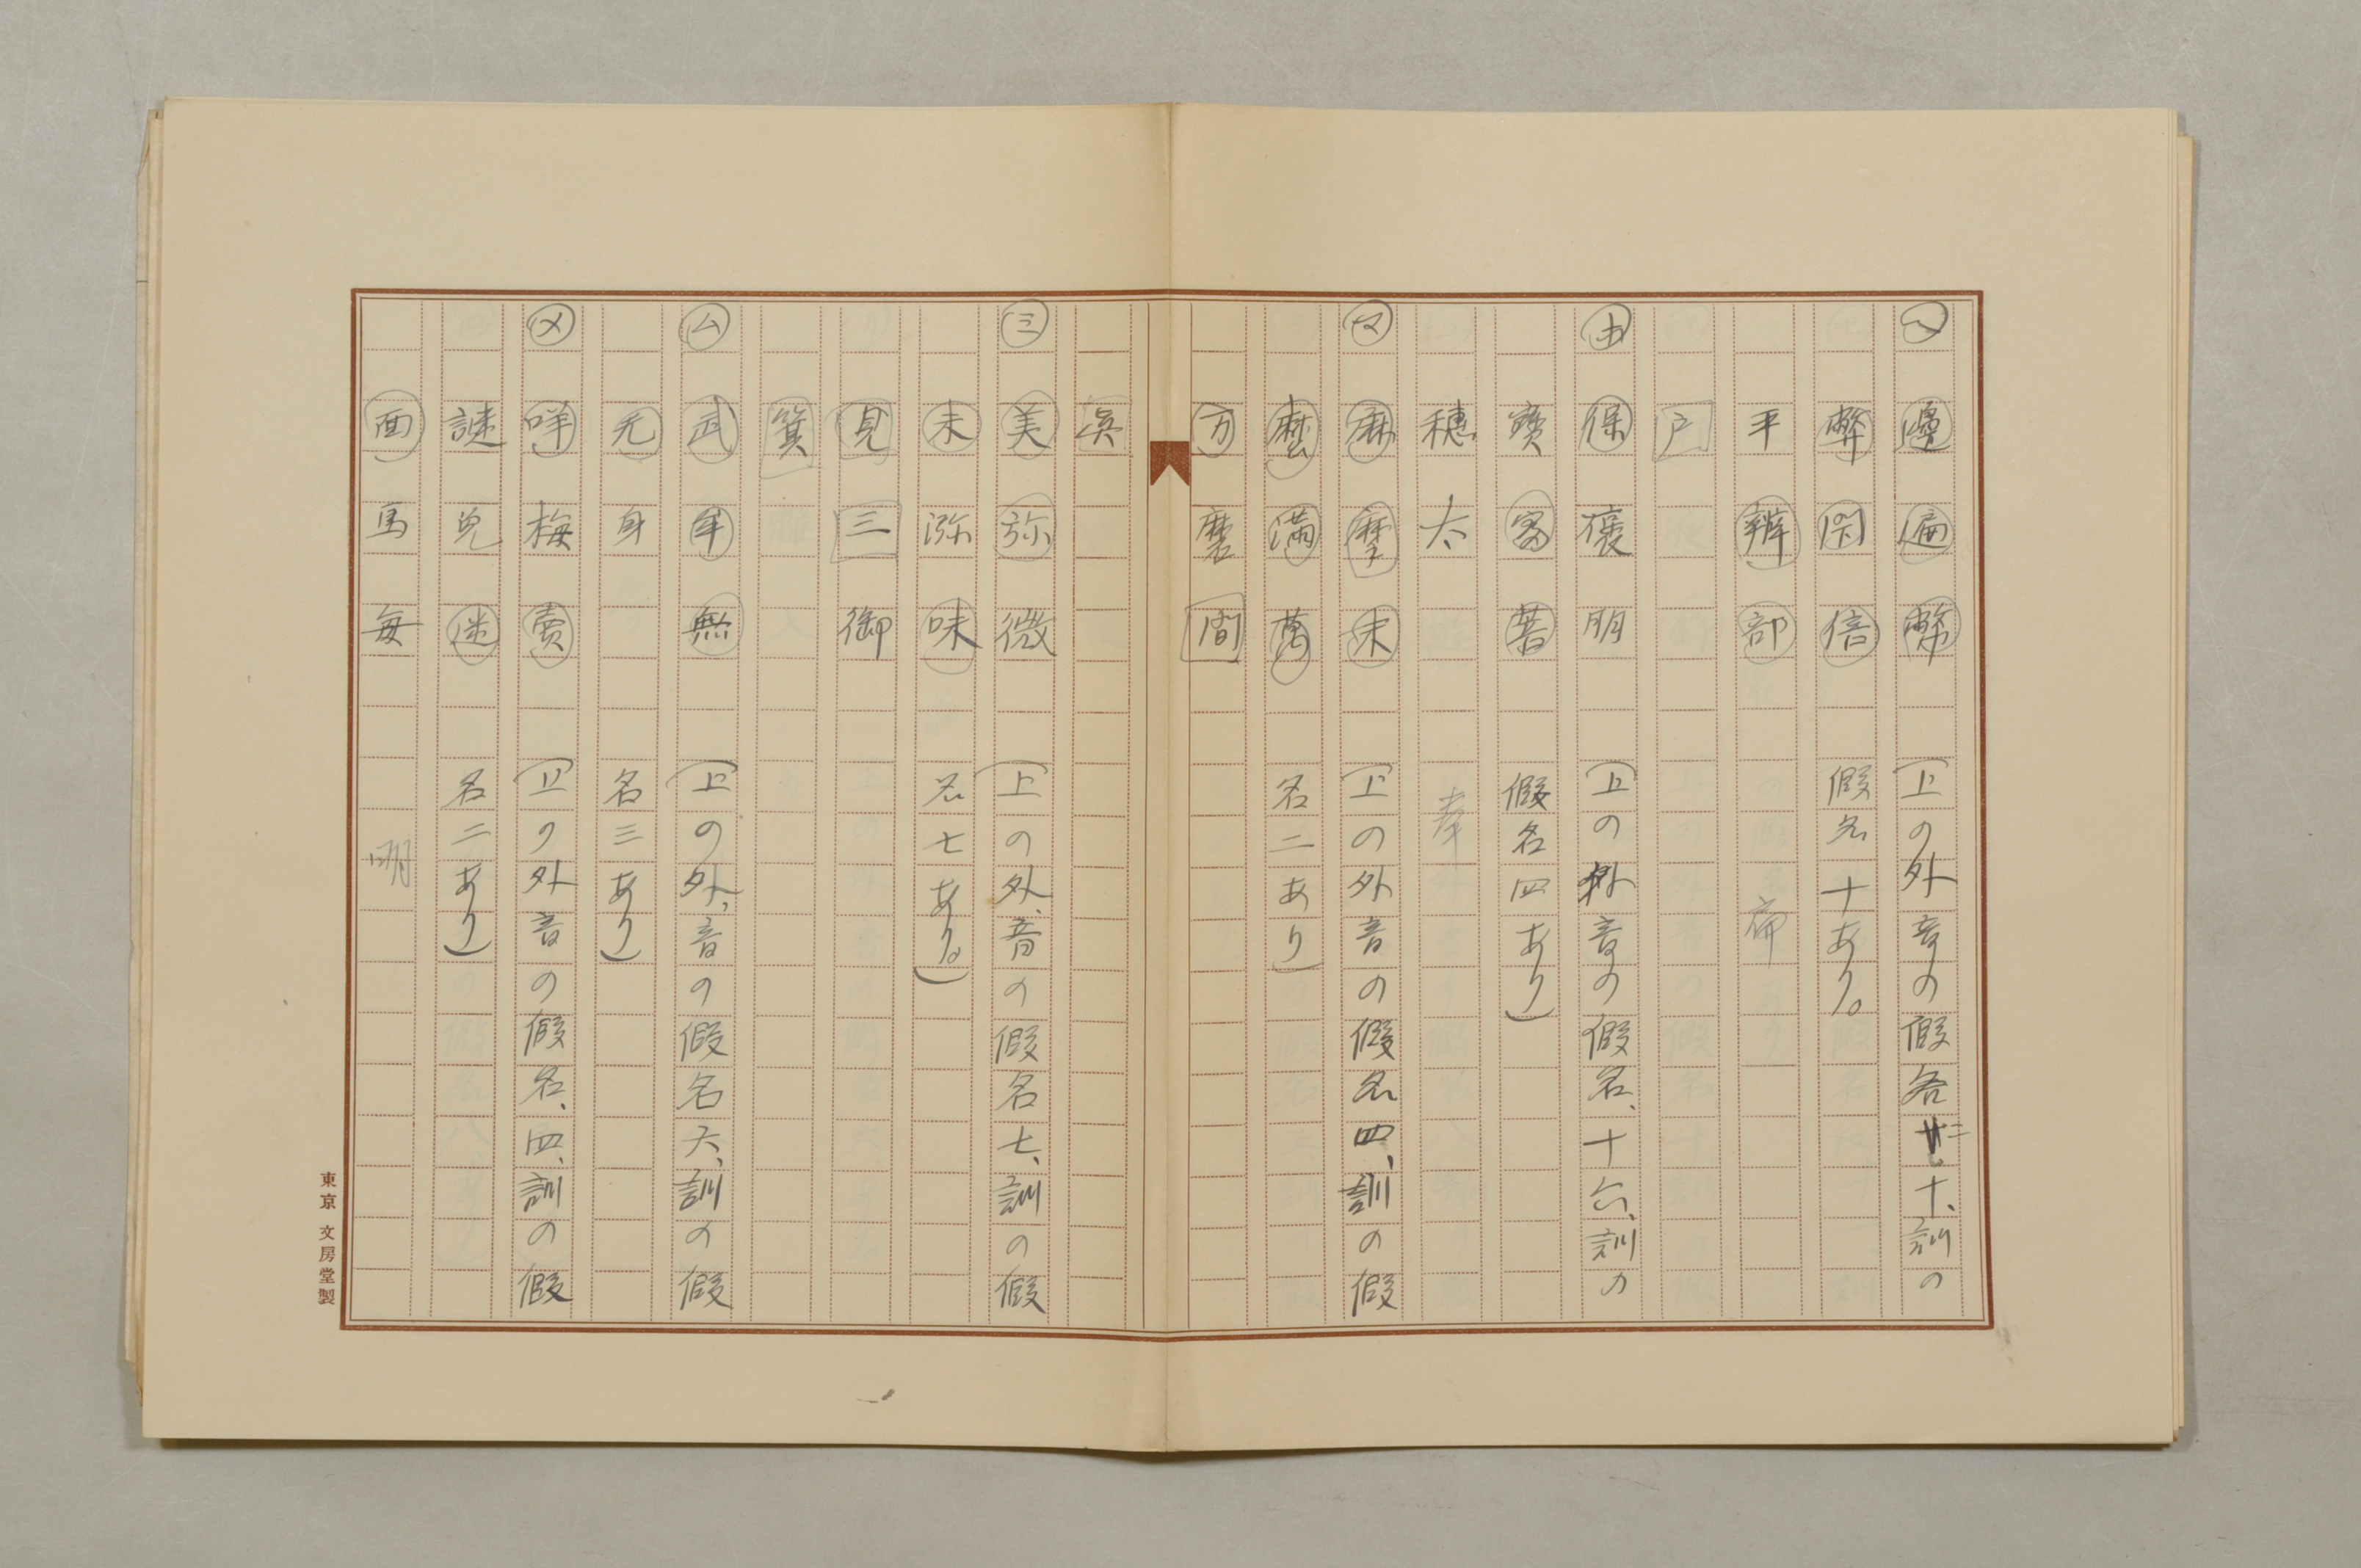 へ 邊 遍 幣 (上の外音の假名十、訓の
弊 閇 倍 假名十あり。
平 辨 部 㡀
戸
ホ 保 褒 朋 (上の外音の假名、十六、訓の
寶 富 菩 假名四あり)
穗 太 奉
マ 麻 摩 末 (上の外音の假名四、訓の假
麽 滿 萬 名二あり)
万 磨 間
眞
ミ 美 弥 微 (上の外、音の假名七、訓の假
未 瀰 味 名七あり。)
見 三 御
箕
ム 武 牟 無 (上の外、音の假名六、訓の假
无 身 名三あり)
メ 咩 梅 賣 (上の外音の假名、四、訓の假
謎 迷 名二あり)
面 馬 毎 明
東京 文房堂製